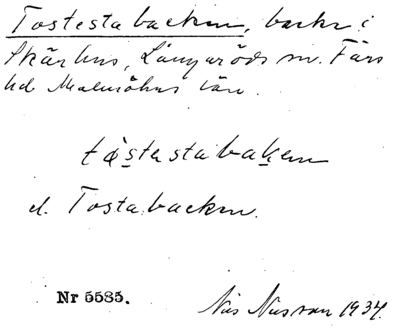 Tostestabacken, backe i
Skärhus, Långaröds sn. Färs
hd Malmöhus län.
tòstestabaḵen
el. Tostabacken.
Nr 5585.
Nils Nilsson 1934.